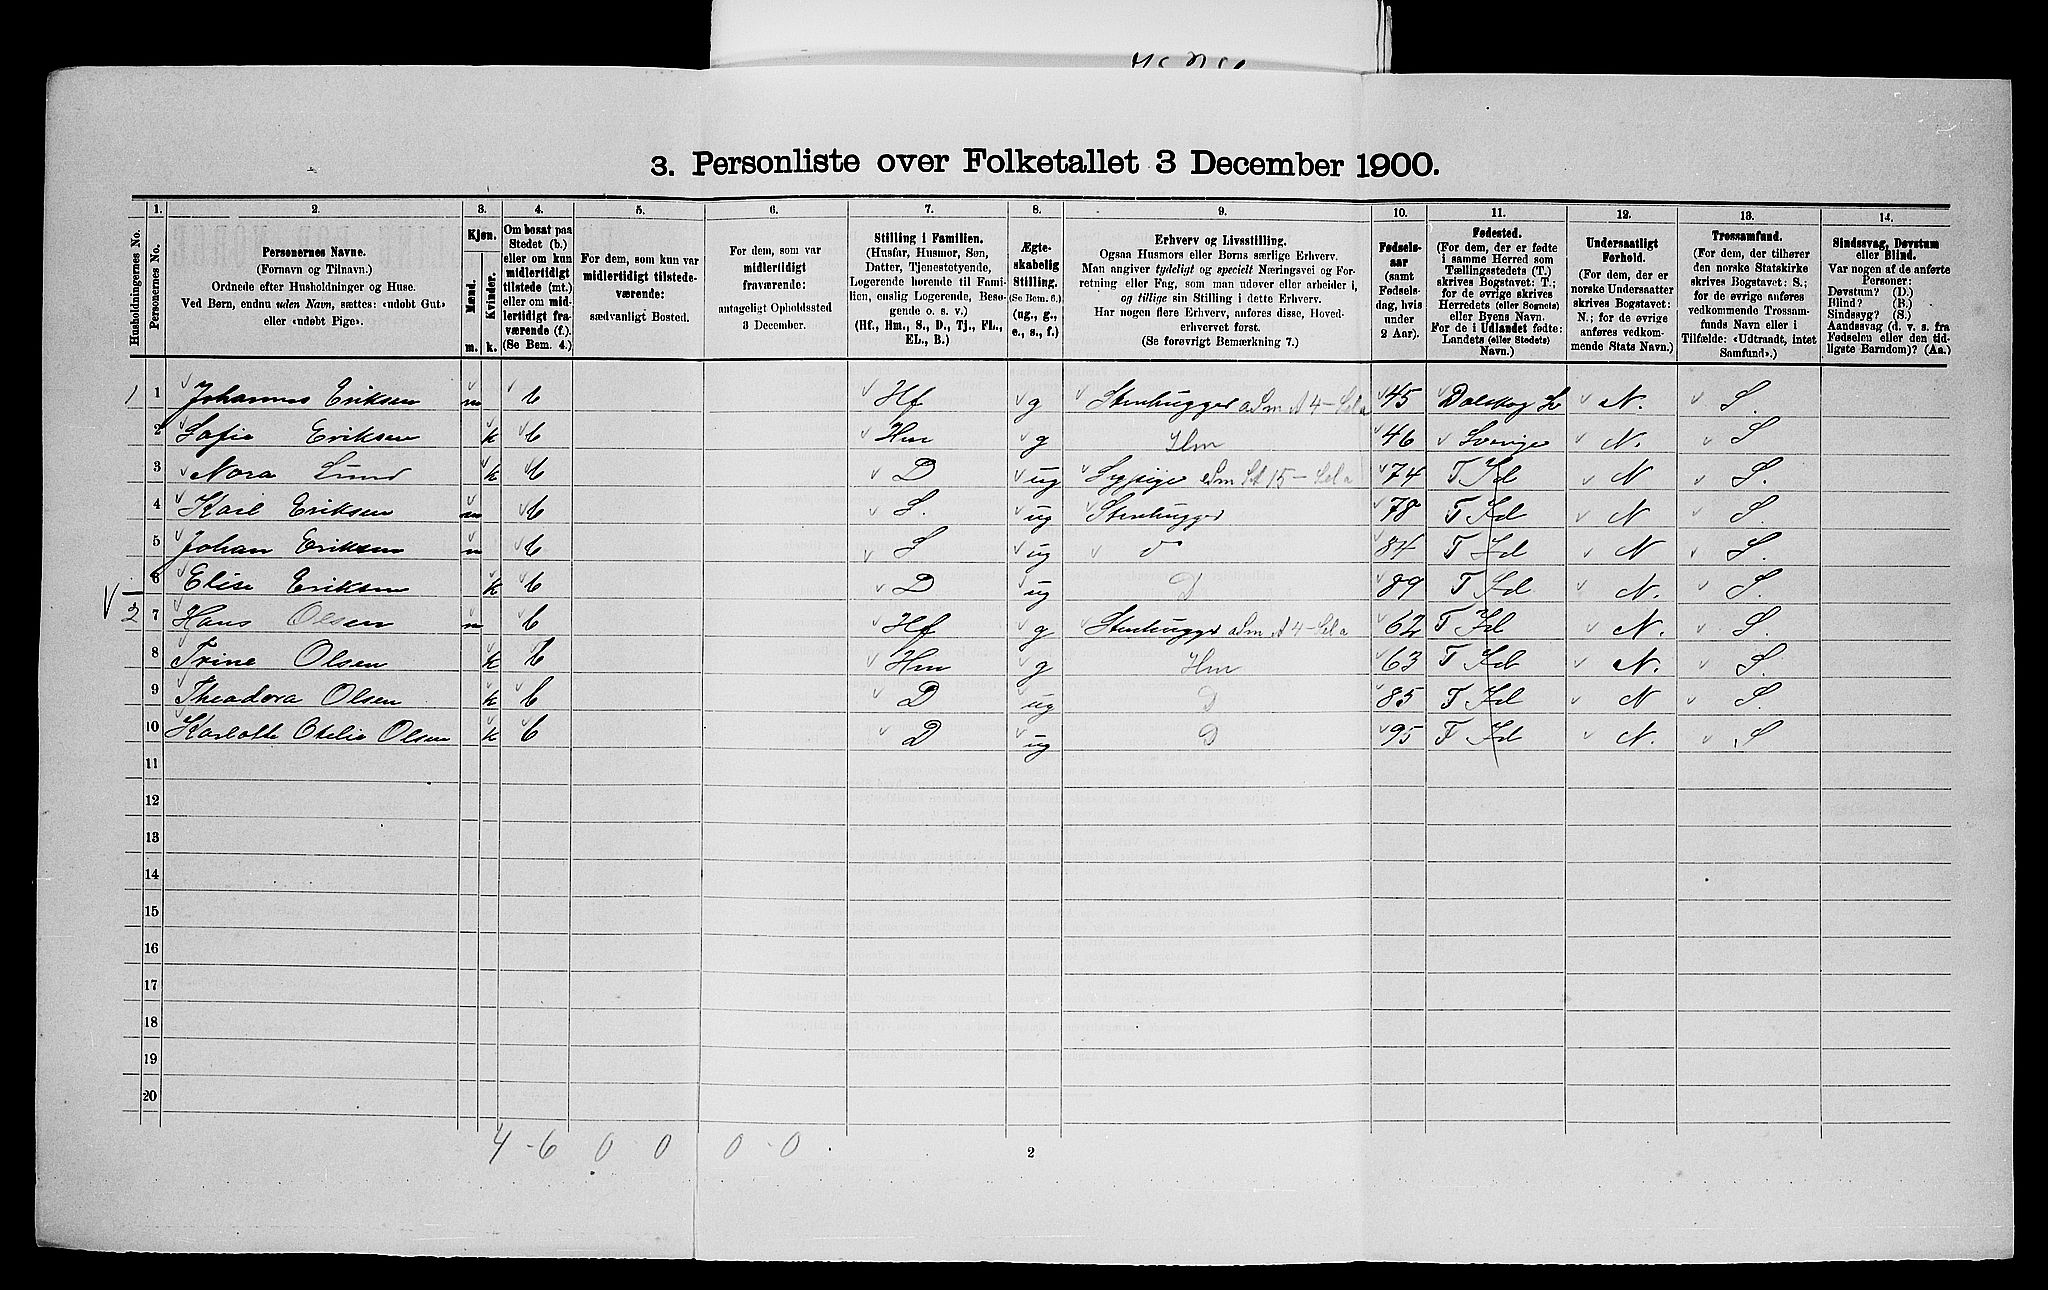 3. Personliste over Folketallet 3 December 1900.
1. 2. 3. 4. 5. 6. 7. 8. 9. 10. 11. 12. 13. 14.
Husholdningernes No.
Personernes No.
Personernes Navne.
(Fornavn og Tilnavn.)
Ordnede efter Husholdninger og Huse.
Ved Børn, endnu uden Navn, sættes: «udøbt Gut»
eller «udøbt Pige».
Kjøn.
Mænd.
Kvinder.
m. k.
Om bosat paa
Stedet (b.)
eller om kun
midlertidigt
tilstede (mt.)
eller om mid-
lertidigt fra-
værende (f.).
(Se Bem. 4.)
For dem, som kun var
midlertidigt tilstede-
værende:
sædvanligt Bosted.
For dem, som var
midlertidigt
fraværende:
antageligt Opholdssted
3 December.
Stilling i Familien.
(Husfar, Husmor, Søn,
Datter, Tjenestetyende,
Logerende hørende til Fami-
lien, enslig Logerende, Besø-
gende o. s. v.)
(Hf., Hm., S., D., Tj., FL.,
EL., B.)
Ægte-
skabelig
Stilling.
(Se Bem. 6.)
(ug., g.,
e., s., f.)
Erhverv og Livsstilling.
Ogsaa Husmors eller Børns særlige Erhverv.
Man angiver tydeligt og specielt Næringsvei og For-
retning eller Fag, som man udøver eller arbeider i,
og tillige sin Stilling i dette Erhverv.
Har nogen flere Erhverv, anføres disse, Hoved-
erhvervet først.
(Se forøvrigt Bemærkning 7.)
Fødsels-
aar
(samt
Fødsels-
dag, hvis
under
2 Aar).
Fødested.
(For dem, der er fødte
i samme Herred som
Tællingsstedets (T.)
skrives Bogstavet: T.;
for de øvrige skrives
Herredets (eller Sognets)
eller Byens Navn.
For de i Udlandet fødte:
Landets (eller Stedets)
Navn.)
Undersaatligt
Forhold.
(For dem, der er
norske Undersaatter
skrives Bogstavet:
N.; for de øvrige
anføres vedkom-
mende Stats Navn.)
Trossamfund.
(For dem, der tilhører
den norske Statskirke
skrives Bogstavet: S.;
for de øvrige anføres
vedkommende Trossam-
funds Navn eller i
Tilfælde: «Udtraadt, intet
Samfund».)
Sindssvag, Døvstum
eller Blind.
Var nogen af de anførte
Personer:
Døvstum? (D.)
Blind? (B.)
Sindssyg? (S.)
Aandssvag (d. v. s. fra
Fødselen eller den tid-
ligste Barndom)? (Aa.)
1 1 Johannes Eriksen m b Hf g Stenhugger 45 Dalskog N. S.
2 Sofie Eriksen k b Hm g Hm 46 Sverige N. S
3 Nora Lund k b D ug Sypige 74 T Id N S.
4 Karl Eriksen m b S. ug Stenhugger 78 T Id N S
5 Johan Eriksen m b S ug d° 84 T Id N S.
6 Elise Eriksen k b D ug D 89 T Id N. S.
2 7 Hans Olsen m b Hf g Stenhugger 62 T Id N. S.
8 Trine Olsen k b Hm g Hm 63 T Id N. S
9 Theodora Olsen k b D ug D 85 T Id N S.
10 Karlotte Otelie Olsen k b D ug D 95 T Id N. S
11
12
13
14
15
16
17
18
19
20
4 - 6 0 0 0 - 0
2